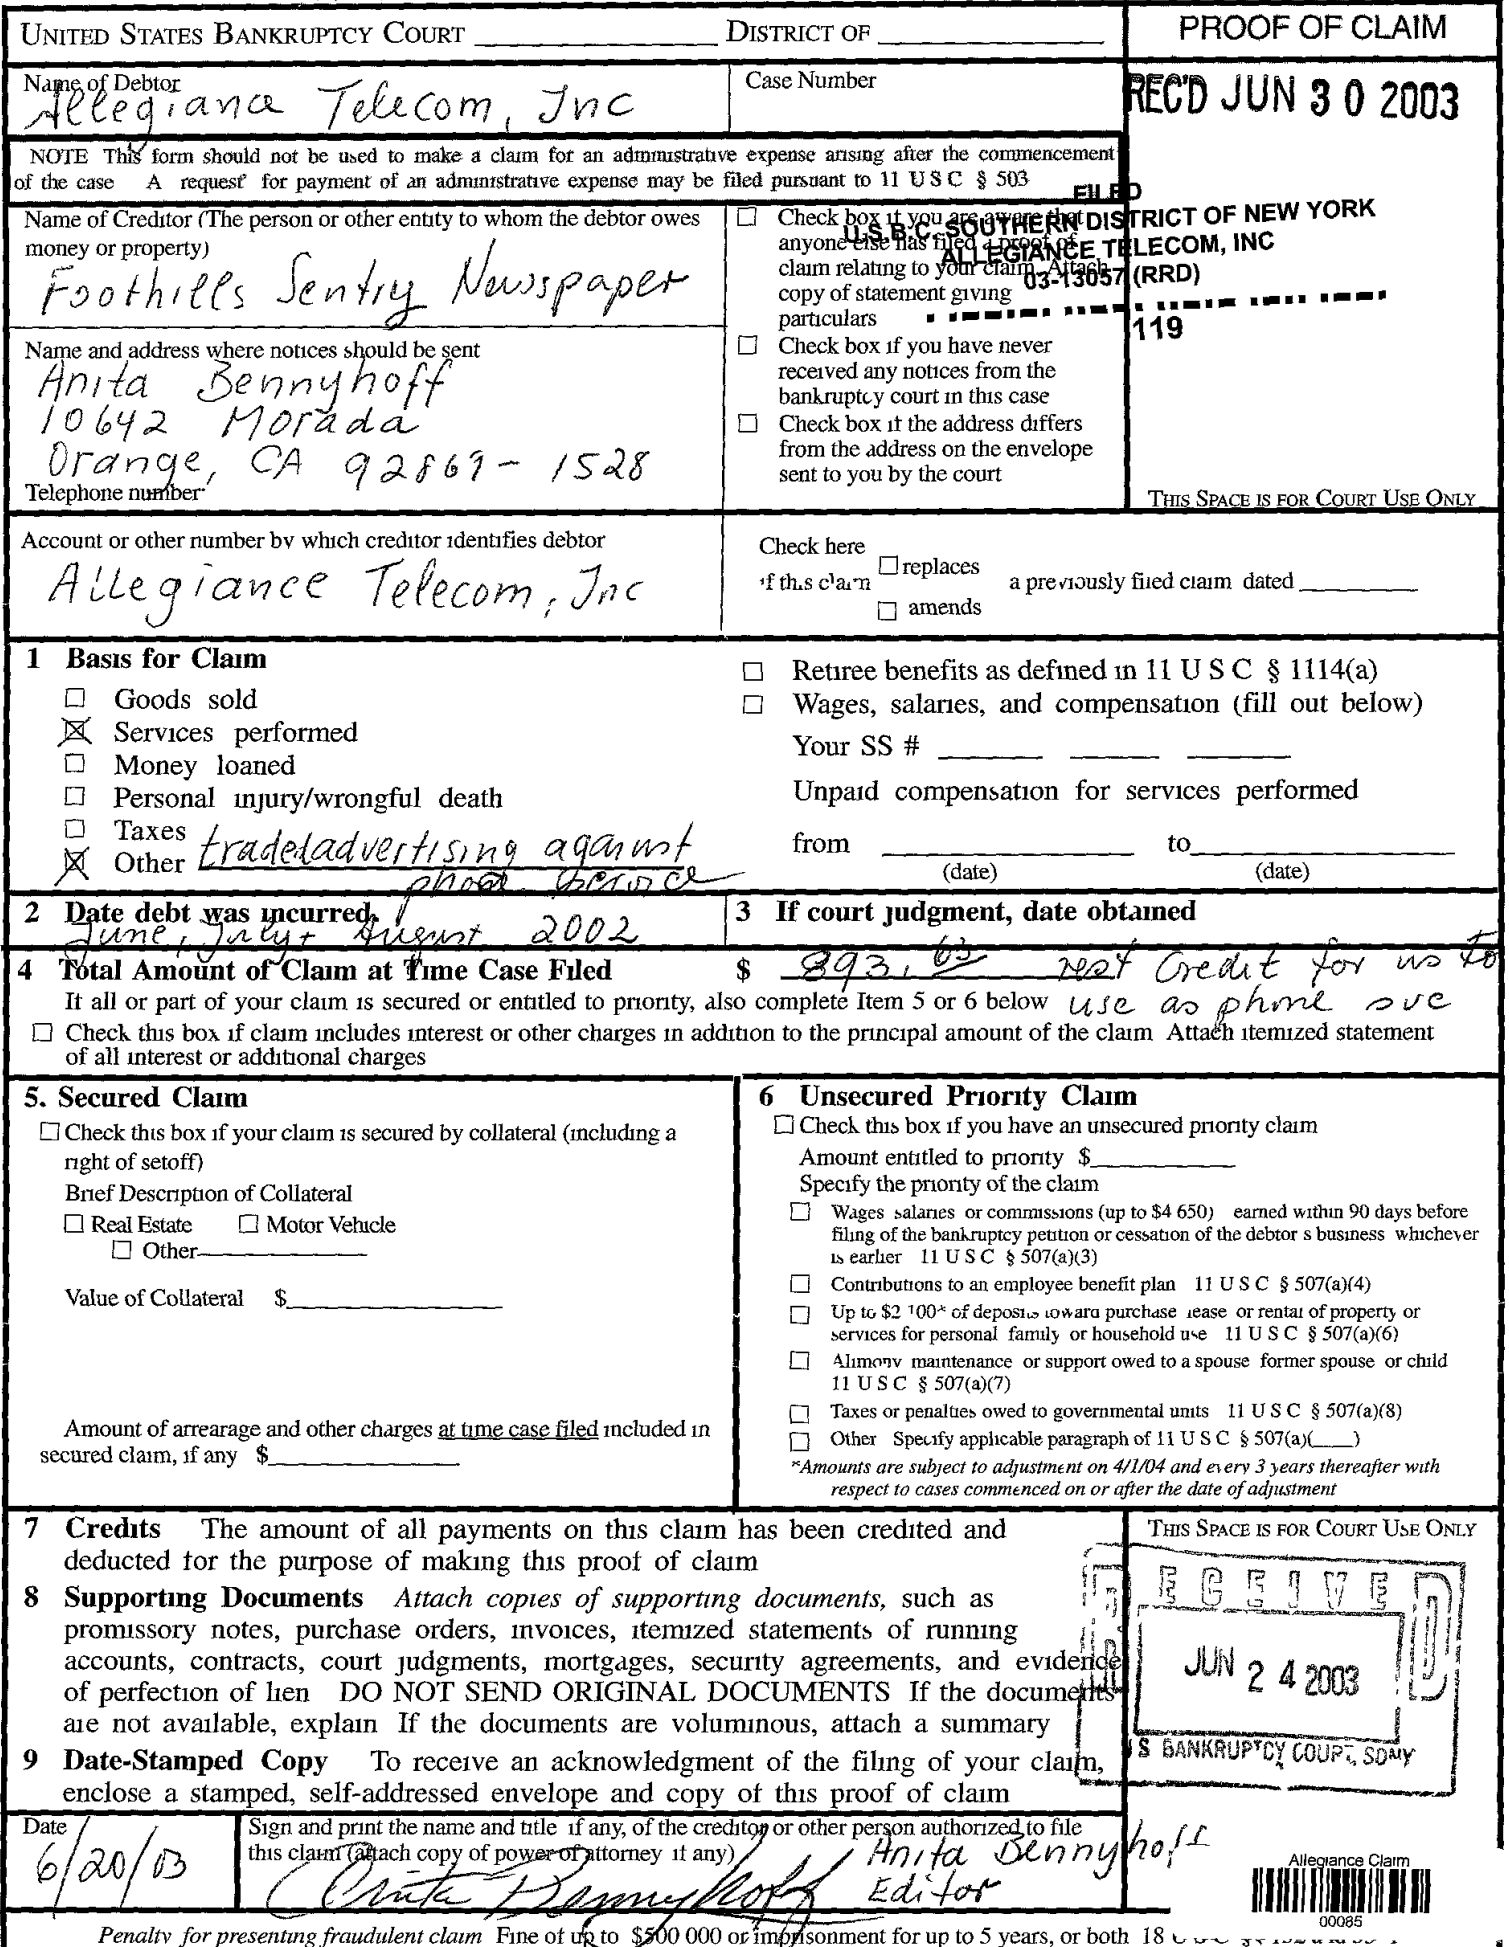 UNITED STATES BANKRUPTCY COURT ____________ DISTRICT OF ____________
PROOF OF CLAIM
Name of Debtor
Allegiance Telecom, Inc
Case Number
REC'D JUN 30 2003
NOTE This form should not be used to make a claim for an administrative expense arising after the commencement
of the case A request for payment of an administrative expense may be filed pursuant to 11 U S C § 503
FILED
U.S.B.C. SOUTHERN DISTRICT OF NEW YORK
ALLEGIANCE TELECOM, INC
03-13057 (RRD)
119
Name of Creditor (The person or other entity to whom the debtor owes
money or property)
Foothills Sentry Newspaper
☐ Check box if you are aware that
anyone else has filed a proof of
claim relating to your claim Attach
copy of statement giving
particulars
Name and address where notices should be sent
Anita Bennyhoff
10642 Morada
Orange, CA 92869-1528
Telephone number
☐ Check box if you have never
received any notices from the
bankruptcy court in this case
☐ Check box if the address differs
from the address on the envelope
sent to you by the court
THIS SPACE IS FOR COURT USE ONLY
Account or other number by which creditor identifies debtor
Allegiance Telecom, Inc
Check here
if this claim ☐ replaces a previously filed claim dated ________
☐ amends
1 Basis for Claim
☐ Goods sold
☒ Services performed
☐ Money loaned
☐ Personal injury/wrongful death
☐ Taxes
☒ Other traded advertising against
phone service
☐ Retiree benefits as defined in 11 U S C § 1114(a)
☐ Wages, salaries, and compensation (fill out below)
Your SS # ______ ______ ______
Unpaid compensation for services performed
from ____________ to ____________
(date) (date)
2 Date debt was incurred.
June, July + August 2002
3 If court judgment, date obtained
4 Total Amount of Claim at Time Case Filed $ 893.63 rest Credit for us to
If all or part of your claim is secured or entitled to priority, also complete Item 5 or 6 below use as phone svc
☐ Check this box if claim includes interest or other charges in addition to the principal amount of the claim Attach itemized statement
of all interest or additional charges
5. Secured Claim
☐ Check this box if your claim is secured by collateral (including a
right of setoff)
Brief Description of Collateral
☐ Real Estate ☐ Motor Vehicle
☐ Other____________
Value of Collateral $____________
Amount of arrearage and other charges at time case filed included in
secured claim, if any $____________
6 Unsecured Priority Claim
☐ Check this box if you have an unsecured priority claim
Amount entitled to priority $____________
Specify the priority of the claim
☐ Wages salaries or commissions (up to $4 650) earned within 90 days before
filing of the bankruptcy petition or cessation of the debtor s business whichever
is earlier 11 U S C § 507(a)(3)
☐ Contributions to an employee benefit plan 11 U S C § 507(a)(4)
☐ Up to $2 100* of deposits toward purchase lease or rental of property or
services for personal family or household use 11 U S C § 507(a)(6)
☐ Alimony maintenance or support owed to a spouse former spouse or child
11 U S C § 507(a)(7)
☐ Taxes or penalties owed to governmental units 11 U S C § 507(a)(8)
☐ Other Specify applicable paragraph of 11 U S C § 507(a)(____)
*Amounts are subject to adjustment on 4/1/04 and every 3 years thereafter with
respect to cases commenced on or after the date of adjustment
7 Credits The amount of all payments on this claim has been credited and
deducted for the purpose of making this proof of claim
8 Supporting Documents Attach copies of supporting documents, such as
promissory notes, purchase orders, invoices, itemized statements of running
accounts, contracts, court judgments, mortgages, security agreements, and evidence
of perfection of lien DO NOT SEND ORIGINAL DOCUMENTS If the documents
are not available, explain If the documents are voluminous, attach a summary
9 Date-Stamped Copy To receive an acknowledgment of the filing of your claim,
enclose a stamped, self-addressed envelope and copy of this proof of claim
THIS SPACE IS FOR COURT USE ONLY
RECEIVED
JUN 24 2003
US BANKRUPTCY COURT, SDNY
Date
6/20/03
Sign and print the name and title if any, of the creditor or other person authorized to file
this claim (attach copy of power of attorney if any)
Anita Bennyhoff
Anita Bennyhoff
Editor
Allegiance Claim
00085
Penalty for presenting fraudulent claim Fine of up to $500 000 or imprisonment for up to 5 years, or both 18